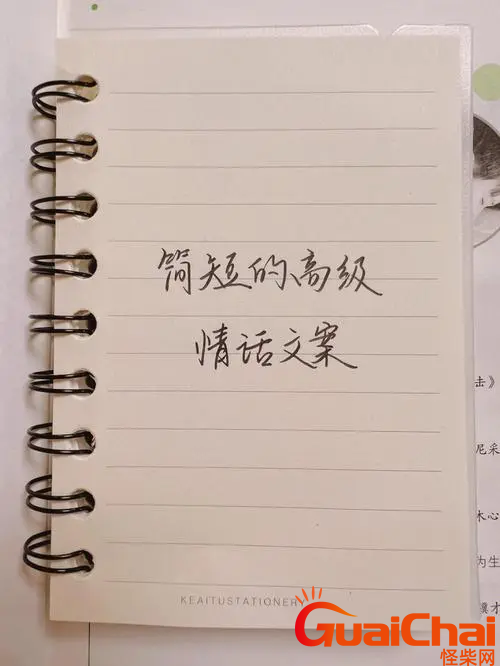 简短的高级
情话文案
击》
尼采
木心
为生
KEAITUSTATIONERY
GuaiChai
怪柴网